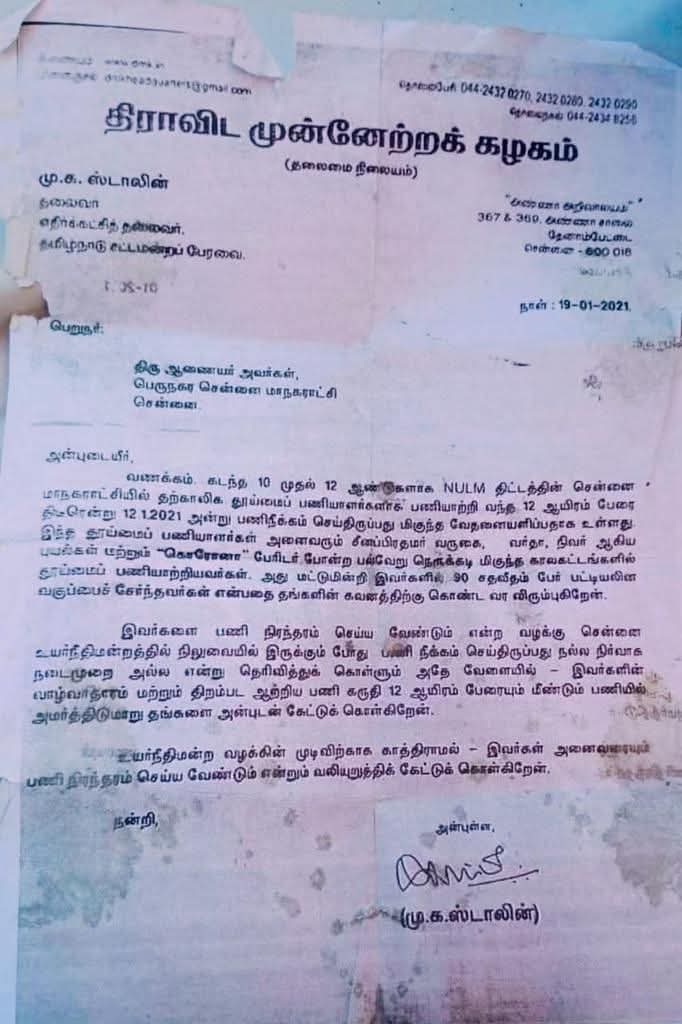 இணையம் : www.dmk.in
மின்னஞ்சல் : dmkheadquaters@gmail.com
தொலைபேசி 044-2432 0270, 2432 0280, 2432 0290
தொலைநகல் 044-2434 8258
திராவிட முன்னேற்றக் கழகம்
(தலைமை நிலையம்)
மு.க. ஸ்டாலின்
தலைவர்
எதிர்க்கட்சித் தலைவர்,
தமிழ்நாடு சட்டமன்றப் பேரவை.
"அண்ணா அறிவாலயம்"
367 & 369, அண்ணா சாலை
தேனாம்பேட்டை
சென்னை - 600 018
நாள் : 19-01-2021.
பெறுநர்:
திரு ஆணையர் அவர்கள்,
பெருநகர சென்னை மாநகராட்சி
சென்னை.
அன்புடையீர்,
வணக்கம். கடந்த 10 முதல் 12 ஆண்டுகளாக NULM திட்டத்தின் சென்னை
மாநகராட்சியில் தற்காலிக தூய்மைப் பணியாளர்களாக பணியாற்றி வந்த 12 ஆயிரம் பேரை
திடீரென்று 12.1.2021 அன்று பணிநீக்கம் செய்திருப்பது மிகுந்த வேதனையளிப்பதாக உள்ளது.
இந்த தூய்மைப் பணியாளர்கள் அனைவரும் சீனப்பிரதமர் வருகை, வர்தா, நிவர் ஆகிய
புயல்கள் மற்றும் "கொரோனா" பேரிடர் போன்ற பல்வேறு நெருக்கடி மிகுந்த காலகட்டங்களில்
தூய்மைப் பணியாற்றியவர்கள். அது மட்டுமின்றி இவர்களில் 90 சதவீதம் பேர் பட்டியலின
வகுப்பைச் சேர்ந்தவர்கள் என்பதை தங்களின் கவனத்திற்கு கொண்ட வர விரும்புகிறேன்.
இவர்களை பணி நிரந்தரம் செய்ய வேண்டும் என்ற வழக்கு சென்னை
உயர்நீதிமன்றத்தில் நிலுவையில் இருக்கும் போது பணி நீக்கம் செய்திருப்பது நல்ல நிர்வாக
நடைமுறை அல்ல என்று தெரிவித்துக் கொள்ளும் அதே வேளையில் – இவர்களின்
வாழ்வாதாரம் மற்றும் திறம்பட ஆற்றிய பணி கருதி 12 ஆயிரம் பேரையும் மீண்டும் பணியில்
அமர்த்திடுமாறு தங்களை அன்புடன் கேட்டுக் கொள்கிறேன்.
உயர்நீதிமன்ற வழக்கின் முடிவிற்காக காத்திராமல் – இவர்கள் அனைவரையும்
பணி நிரந்தரம் செய்ய வேண்டும் என்றும் வலியுறுத்திக் கேட்டுக் கொள்கிறேன்.
நன்றி,
அன்புள்ள,
(மு.க.ஸ்டாலின்)